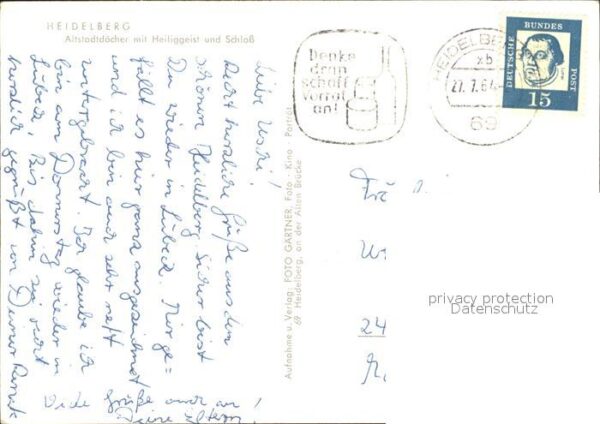 HEIDELBERG
Altstadtdächer mit Heiliggeist und Schloß
Liebe Uschi!
Recht herzliche Grüße aus dem
schönen Heidelberg. Sicher bist
Du wieder in Lübeck. Mir ge=
fällt es hier ganz ausgezeichnet
und ich bin auch sehr nett
untergebracht. Ich glaube ich
bin am Donnerstag wieder in
Lübeck. Bis dahin sei recht
herzlich gegrüßt von Deiner
Viele Grüße auch an
Deine Eltern!
Aufnahme u. Verlag: FOTO GÄRTNER, Foto - Kino - Porträt
69 Heidelberg, an der Alten Brücke
Denke
dran
schaff
Vorrat
an!
HEIDELBE
xb
27.7.64
69
DEUTSCHE
BUNDES
POST
15
24
privacy protection
Datenschutz